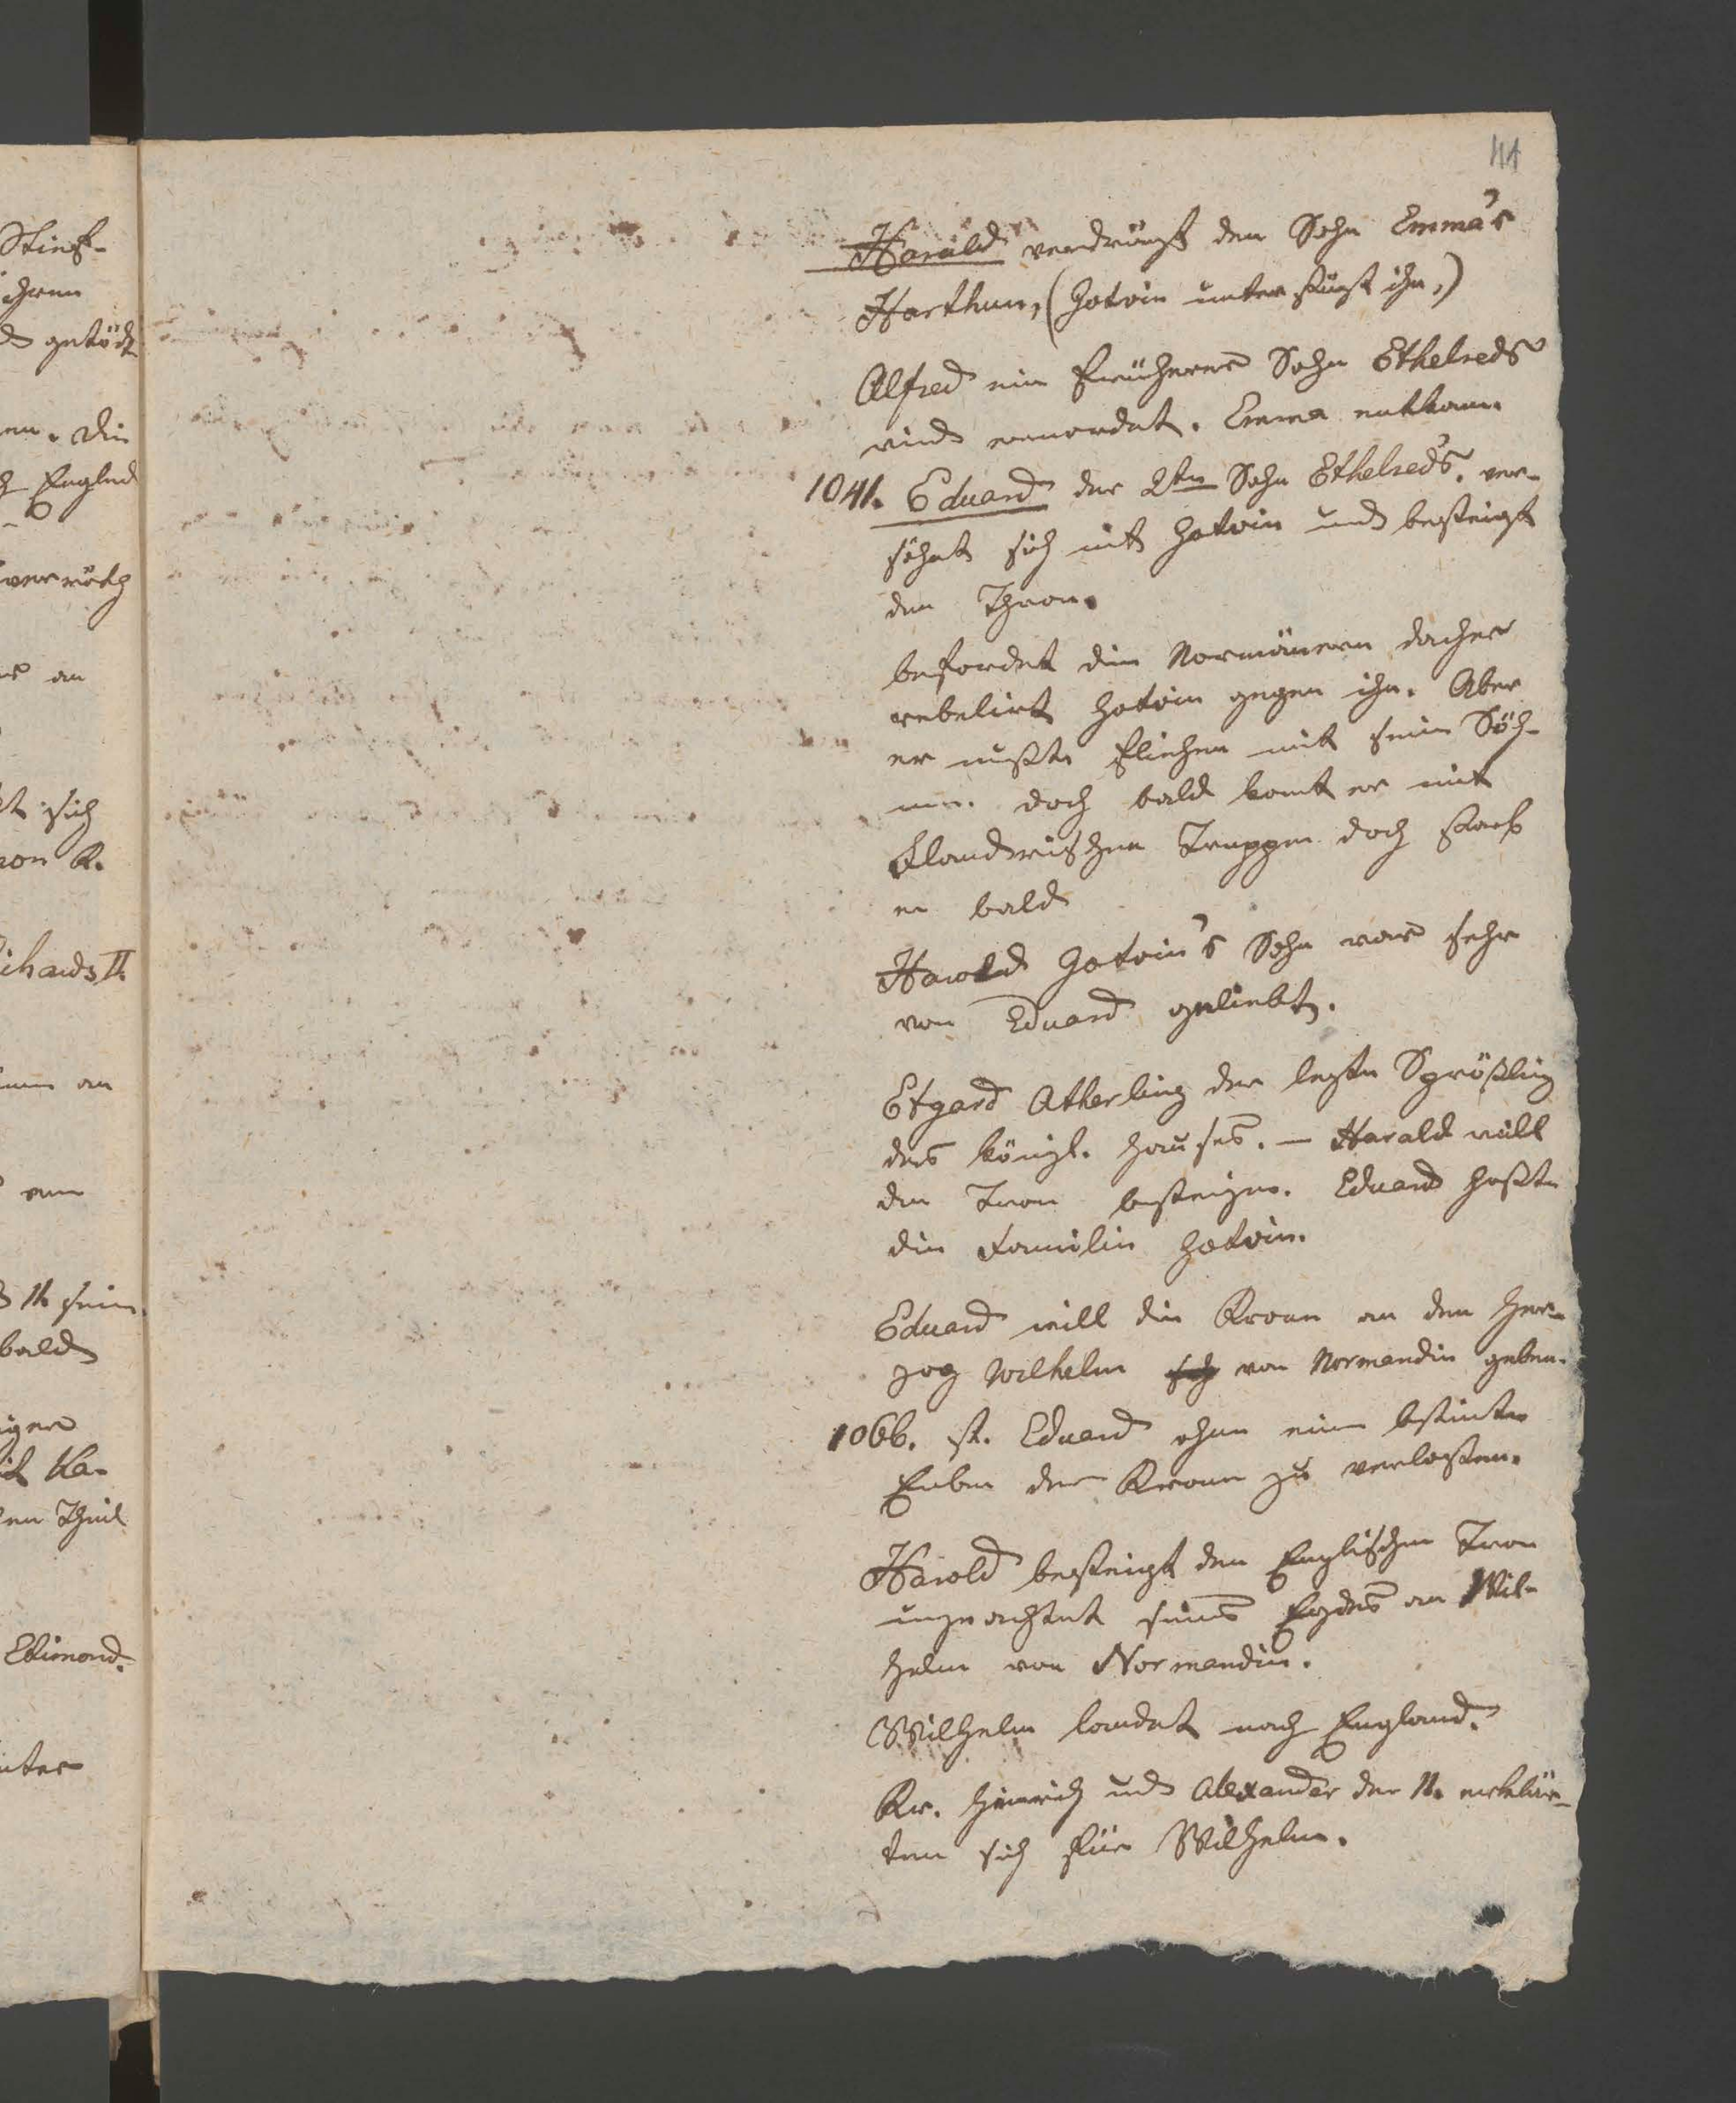 41
Stief-
ihren
getödt
en. die
Englnd
verröth
an
sich
von K.
ichards II.
an
II. sein
bald
iger
Ka-
en Theil
Edimond.
unter
Harald verdrängt den Sohn Emma's
Harthun, (Hotvin unterstüzt ihn,)
Alfred ein früherer Sohn Ethelreds
wird ermordet. Emma entkam.
1041. Eduard der 2te Sohn Ethelred's. ver-
söhnt sich mit Hotvin und besteigt
den Thron.
befordet die Normänern daher
rebelirt Hotvin gegen ihn. Aber
er mußte fliehen mit sein Söh-
nen. doch bald komt er mit
Flanderischen Truppen doch starb
er bald
Harold Hotvin's Sohn war sehr
von Eduard geliebt.
Etgard Atherling der lezte Sprößling
des königl. Hauses. – Harald will
den Tron besteigen. Eduard haßte
die Familie Hotvin.
Eduard will die Krone an den Her-
zog Wilhelm von Normandie geben.
1066. st. Eduard ohne einen bestimten
Erben der Krone zu verlassen.
Harold besteigt den Englischen Tron
ungeachtet seines Eydes an Wil-
helm von Normandie.
Wilhelm landet nach England.
Kr. Heinrich und Alexander der II. erklär-
ten sich für Wilhelm.